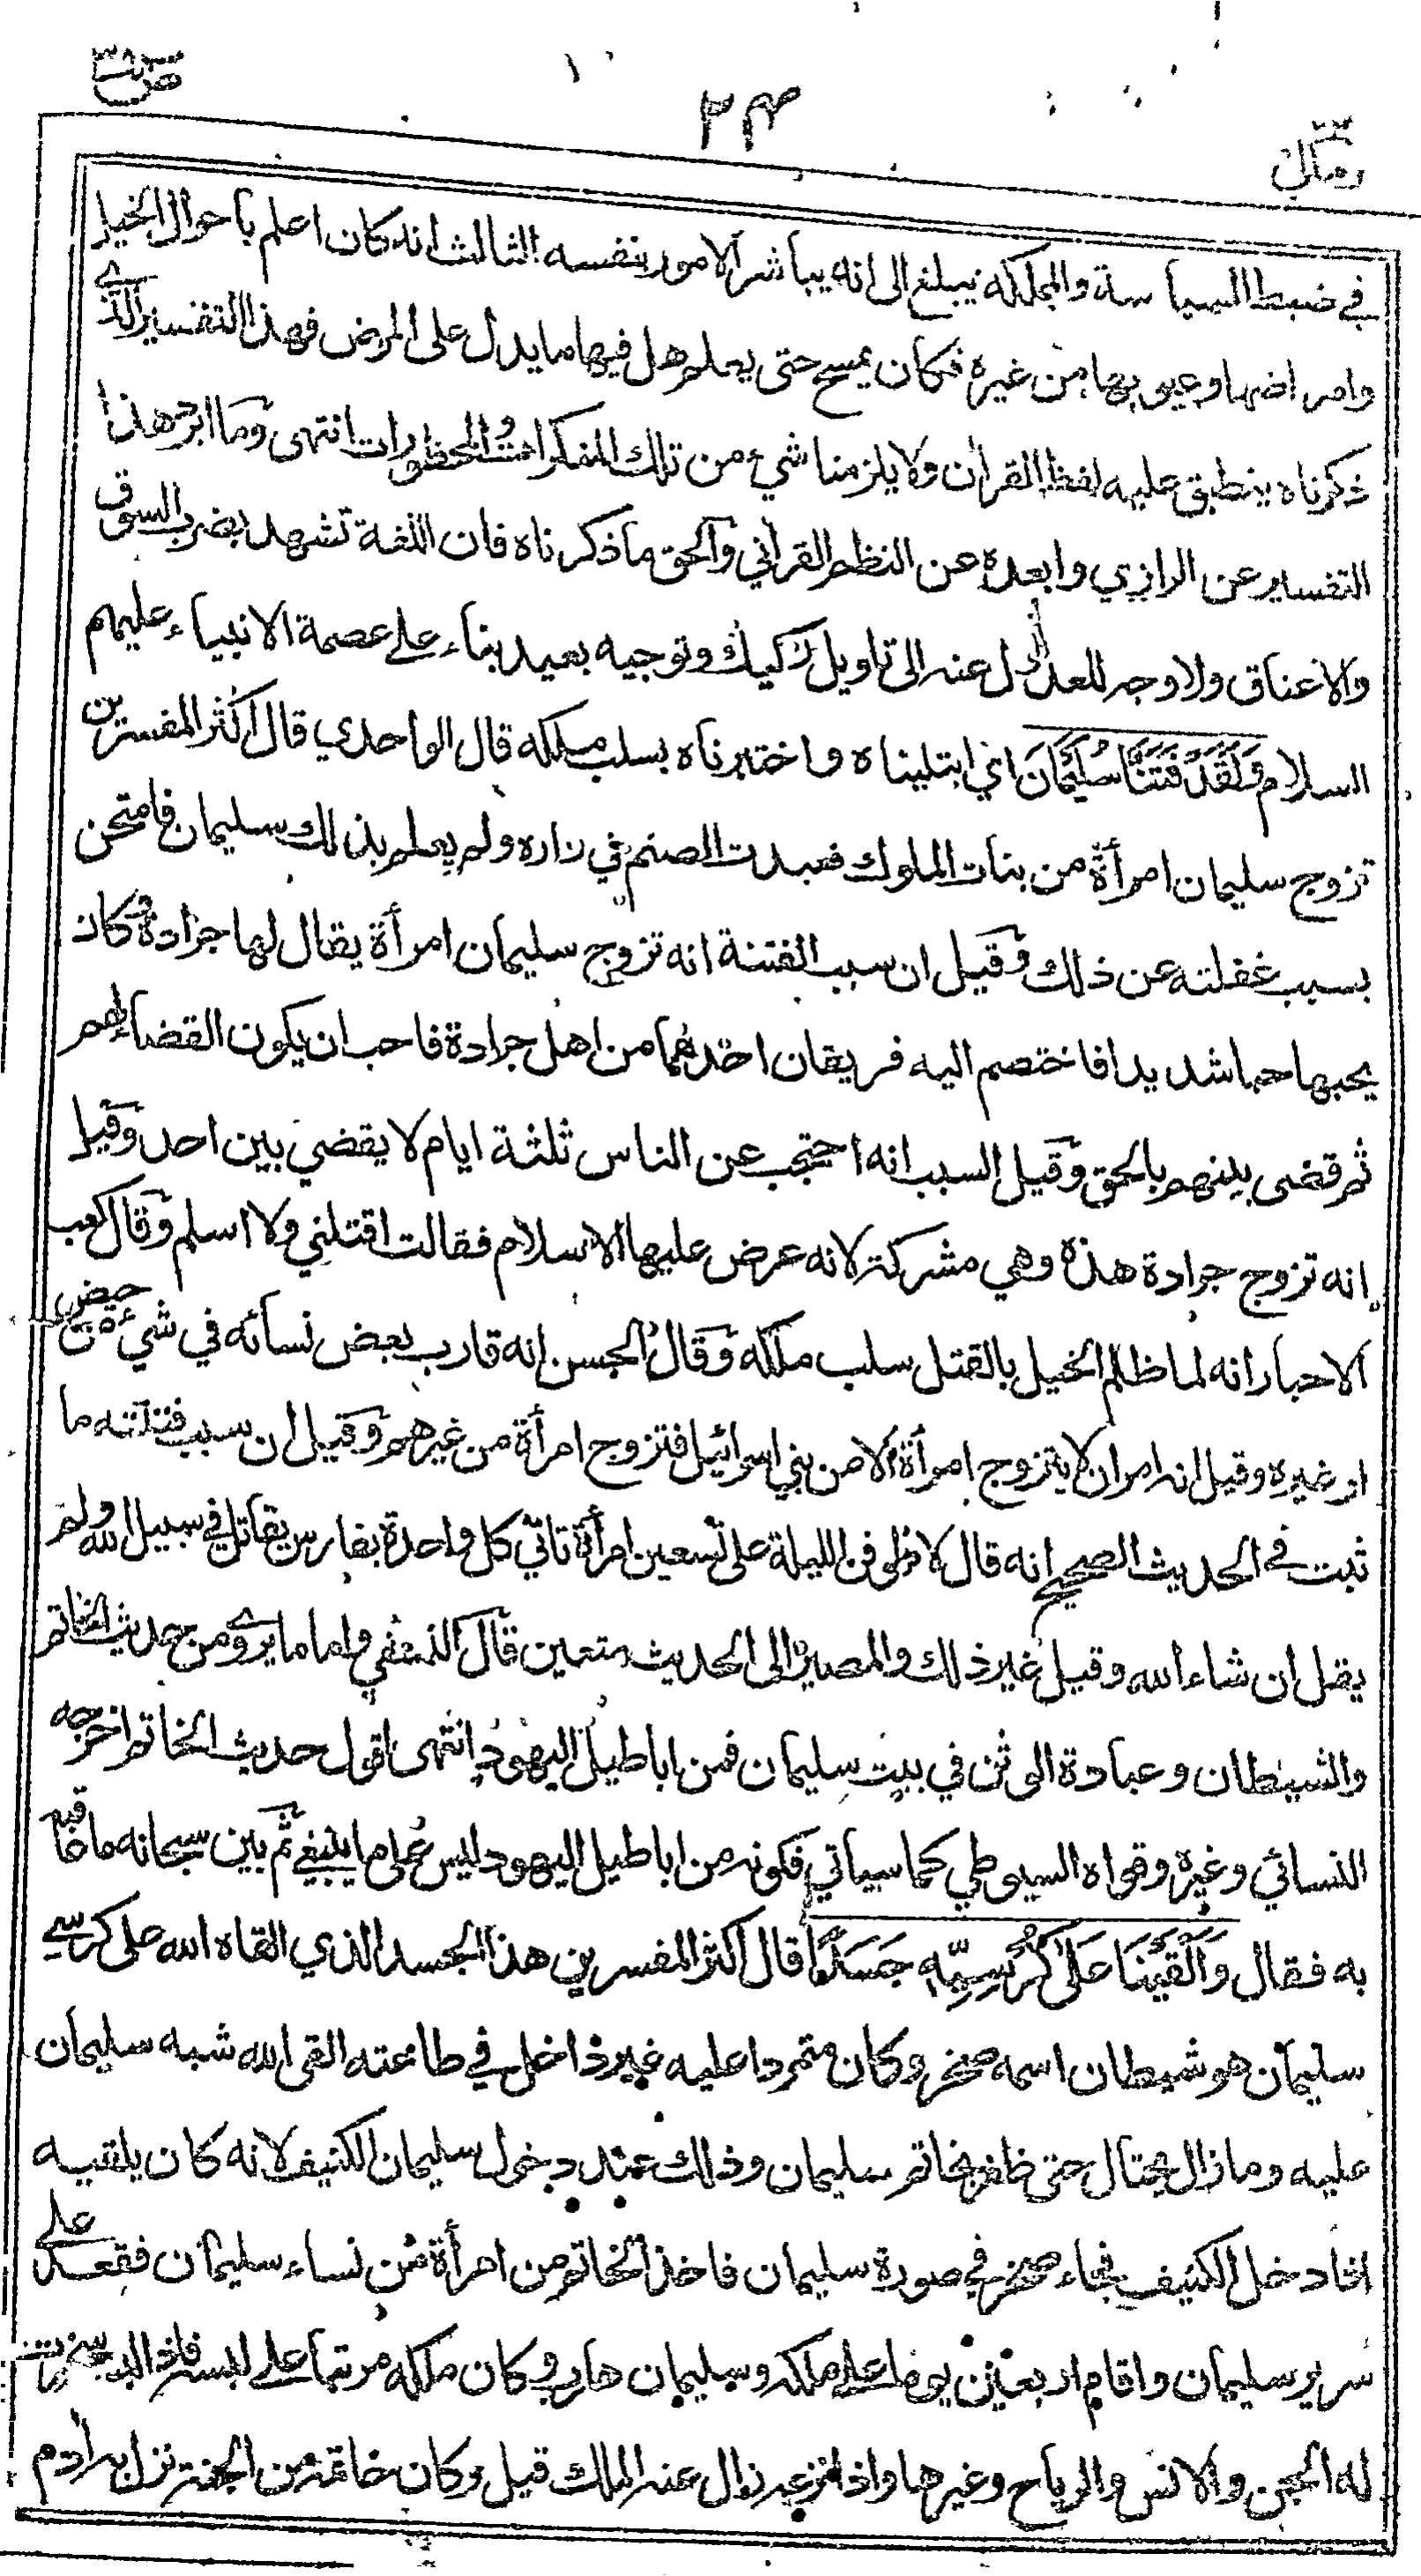 ص ٣٨
٢٤٣
ومالي ٢٣
في ضبط السياسة والمملكة يبلغ الى انه يباشر الامور بنفسه الثالث انه كان اعلم باحوال الخيل
وامراضها وعيوبها من غيره فكان يمسح حتى يعلم هل فيها ما يدل على المرض فهذا التفسير الذي
ذكرناه ينطبق عليه لفظ القران ولا يلزمنا شيء من تلك المنكرات والمحظورات انتهى وما ابرد هذا
التفسير عن الرازي وابعده عن النظم القراني والحق ما ذكرناه فان اللغة تشهد بضرب السوق
والاعناق ولا وجه للعدول عنه الى تاويل ركيك وتوجيه بعيد بناء على عصمة الانبياء عليهم
السلام وَلَقَدْ فَتَنَّا سُلَيْمَانَ اي ابتليناه واختبرناه بسلب ملكه قال الواحدي قال اكثر المفسرين
تزوج سليمان امرأة من بنات الملوك فعبدت الصنم في داره ولم يعلم بذلك سليمان فامتحن
بسبب غفلته عن ذلك وقيل ان سبب الفتنة انه تزوج سليمان امرأة يقال لها جرادة وكان
يحبها حبا شديدا فاختصم اليه فريقان احدهما من اهل جرادة فاحب ان يكون القضاء لهم
ثم قضى بينهم بالحق وقيل السبب انه احتجب عن الناس ثلثة ايام لا يقضي بين احد وقيل
انه تزوج جرادة هذه وهي مشركة لانه عرض عليها الاسلام فقالت اقتلني ولا اسلم وقال كعب
الاحبار انه لما ظلم الخيل بالقتل سلب ملكه وقال الحسن انه قارب بعض نسائه في شيء من حيض
او غيره وقيل انه امر ان لا يتزوج امرأة الا من بني اسرائيل فتزوج امرأة من غيرهم وقيل ان سبب فتنته ما
ثبت في الحديث الصحيح انه قال لاطوفن الليلة على تسعين امرأة تاتي كل واحدة بفارس يقاتل في سبيل الله ولم
يقل ان شاء الله وقيل غير ذلك والمصير الى الحديث متعين قال النسفي واما ما يروى من حديث الخاتم
والشيطان وعبادة الوثن في بيت سليمان فمن اباطيل اليهود انتهى اقول حديث الخاتم اخرجه
النسائي وغيره وقواه السيوطي كما سياتي فكونه من اباطيل اليهود ليس على ما ينبغي ثم بين سبحانه ما عاقبه
به فقال وَأَلْقَيْنَا عَلَى كُرْسِيِّهِ جَسَدًا قال اكثر المفسرين هذا الجسد الذي القاه الله على كرسي
سليمان هو شيطان اسمه صخر وكان متمردا عليه غير داخل في طاعته القى الله شبه سليمان
عليه وما زال يحتال حتى ظفر بخاتم سليمان وذلك عند دخول سليمان الكنيف لانه كان يلقيه
اذا دخل الكنيف فجاء صخر في صورة سليمان فاخذ الخاتم من امرأة من نساء سليمان فقعد على
سرير سليمان واقام اربعين يوما على ملكه وسليمان هارب وكان ملكه مرتبا على لبسه فاذا لبسه سخرت
له الجن والانس والرياح وغيرها واذا نزعه زال عنه الملك قيل وكان خاتمه من الجنة نزل به ادم